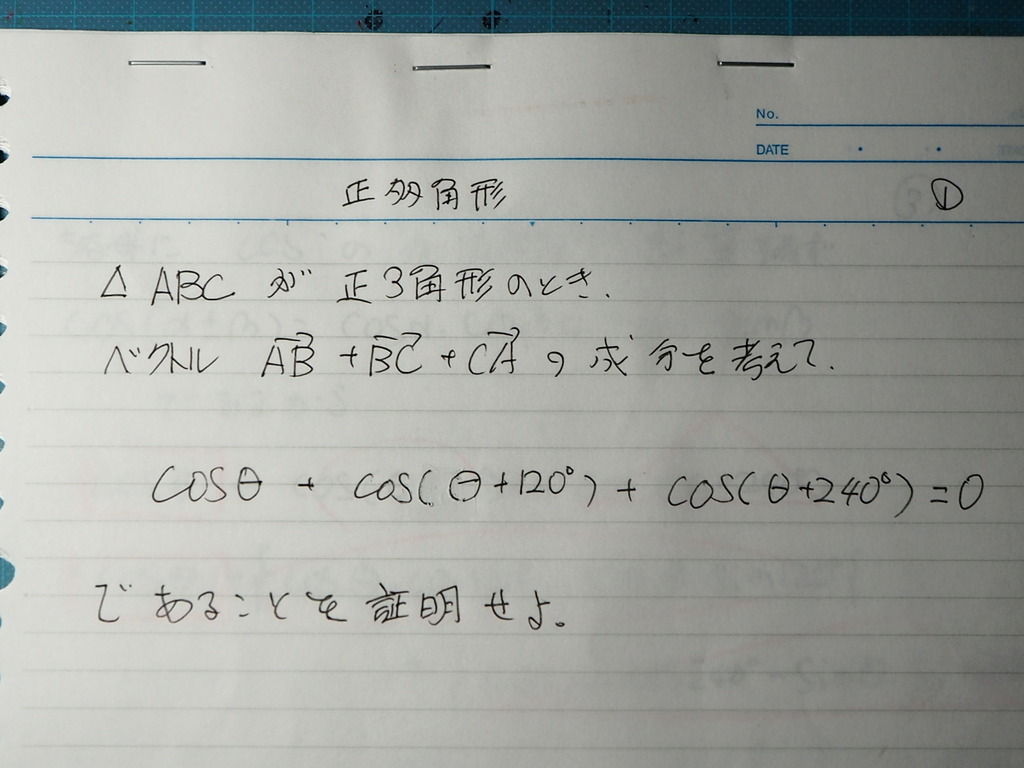 No.
DATE
正多角形 ①
△ABC が 正3角形のとき.
ベクトル $\overrightarrow{AB}+\overrightarrow{BC}+\overrightarrow{CA}$ の 成分を考えて.
cosθ + cos(θ+120°) + cos(θ+240°)=0
であることを証明せよ。